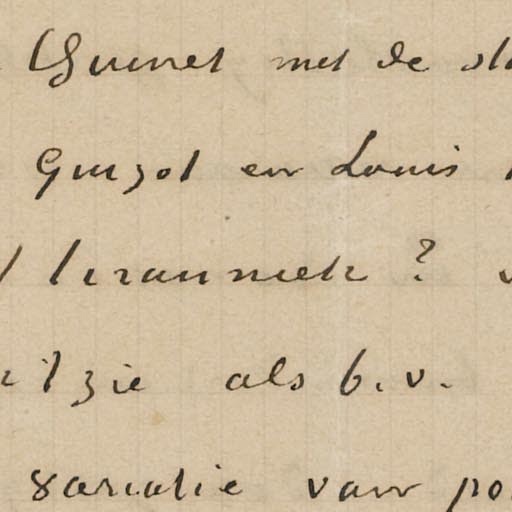 Quinet met de
Guizot en Louis
tiranniek ?
zie als b.v.
variatie van